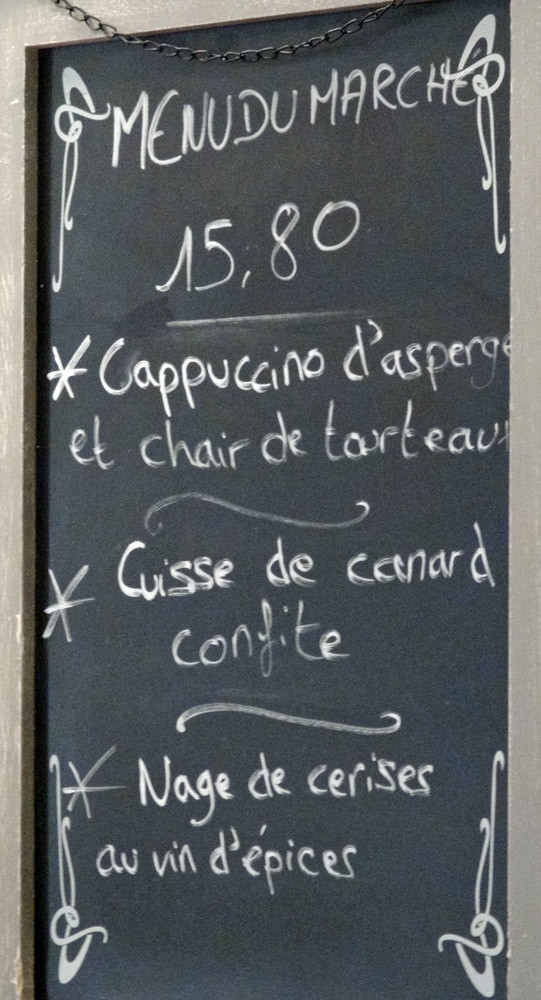 MENU DU MARCHÉ
15,80
* Cappuccino d'asperge
et chair de tourteaux
* Cuisse de canard
confite
* Nage de cerises
au vin d'épices